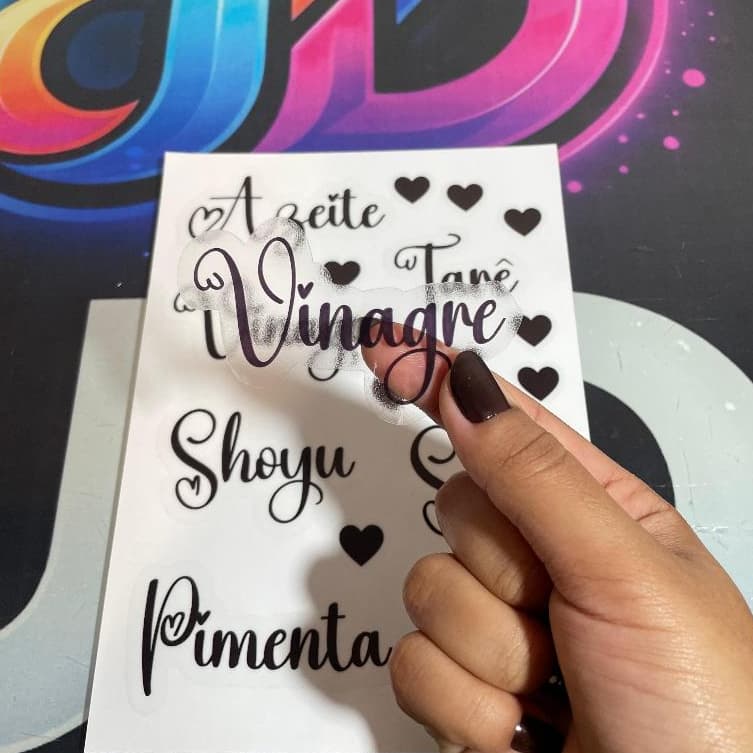 Azeite
Tarê
Vinagre
Shoyu
Pimenta